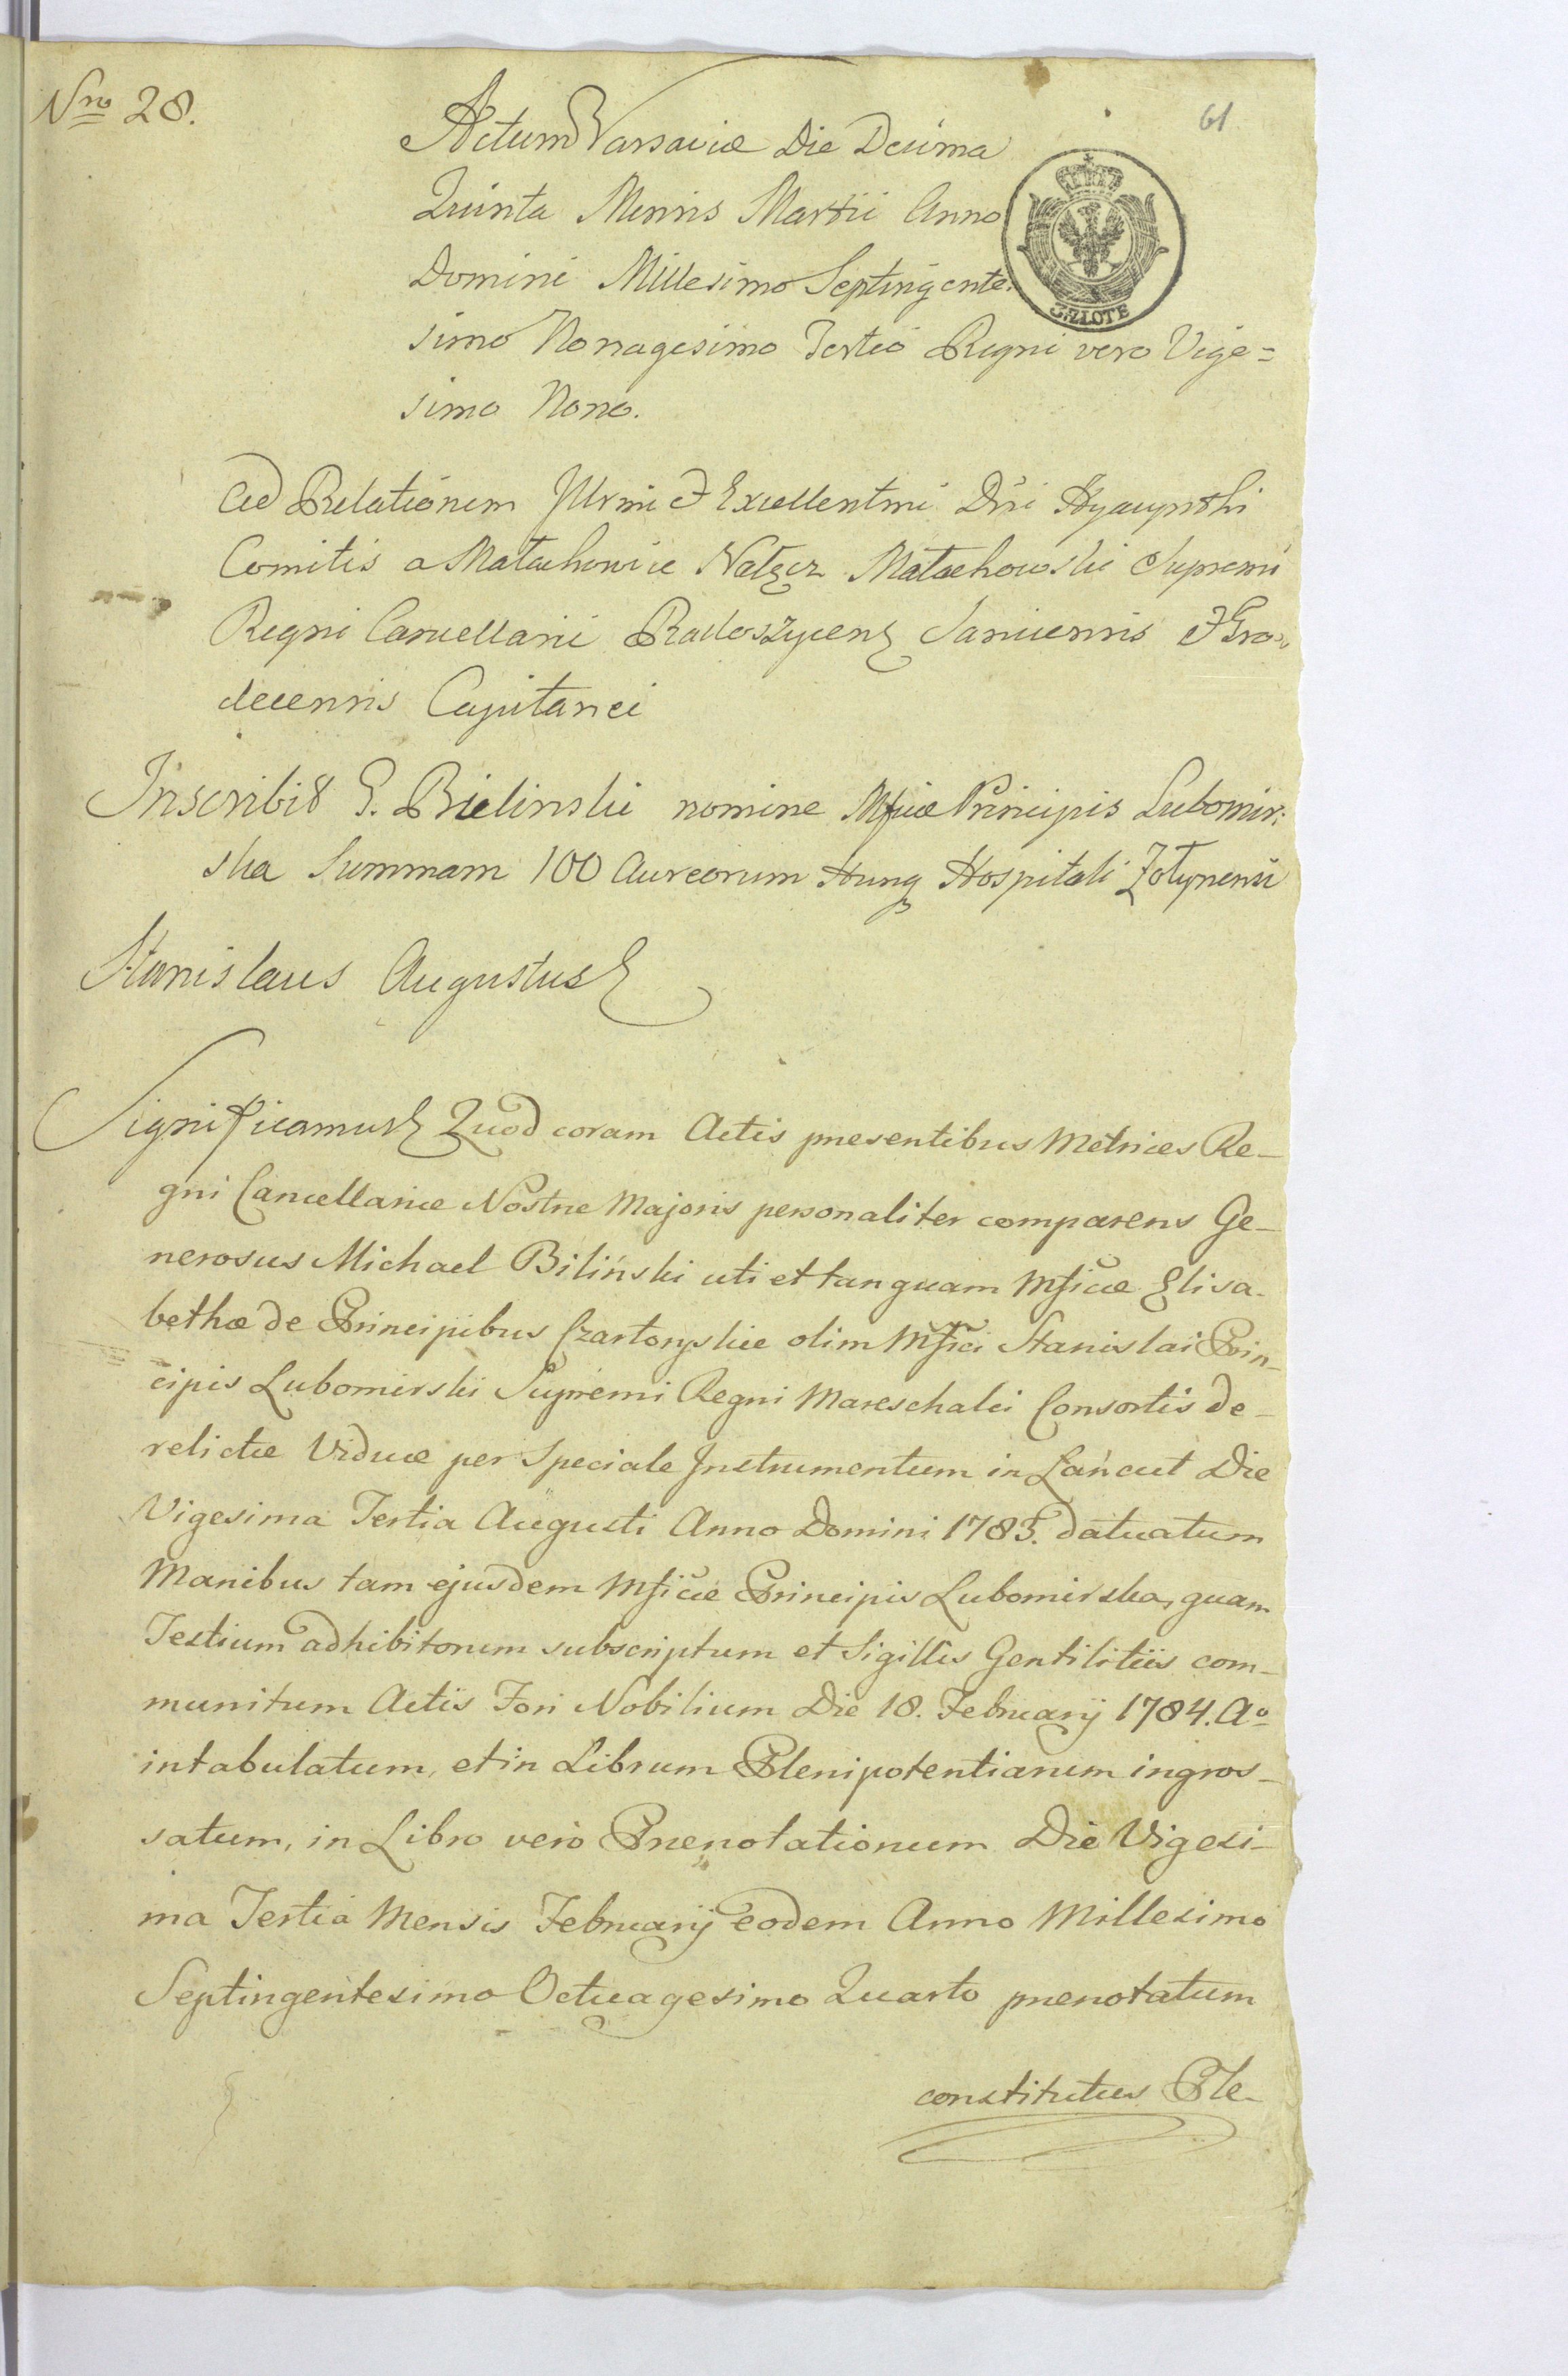 Nro 28.
61
Actum Varsaviæ Die Decima
Quinta Mensis Martii Anno
Domini Millesimo Septingente.
simo Nonagesimo Tertio Regni vero Vige=
simo Nono.
3.ZŁOTE
Ad Relationem Illrmi & Excellentmi Dni Hyacynthi
Comitis a Małachowice Nałęcz Małachowski Supremi
Regni Cancellarii Radoszycen Sanicensis & Gro=
decensis Capitanei
Inscribit G. Bielinski nomine Mficæ Principis Lubomir:
ska Summam 100 Aureorum Hung Hospitali Żołynensi
Stanislaus Augustus
Significamus Quod coram Actis præsentibus Metrices Re-
gni Cancellariæ Nostræ Majoris personaliter comparens Ge-
nerosus Michael Biliński uti et tanquam Mficæ Elisa-
bethæ de Principibus Czartoryskie olim Mfici Stanislai Prin-
cipis Lubomirski Supremi Regni Mareschalci Consortis de-
relictæ Viduæ per Speciale Instrumentum in Łańcut Die
Vigesima Tertia Augusti Anno Domini 1783. datuatum
Manibus tam ejusdem Mficæ Principis Lubomirska, quam
Testium adhibitorum subscriptum et Sigillis Gentilitiis com-
munitum Actis Fori Nobilium Die 18. Februarij 1784. Ao
intabulatum, et in Librum Plenipotentiarum ingros-
satum, in Libro vero Prænotationum Die Vigesi-
ma Tertia Mensis Februarij eodem Anno Millesimo
Septingentesimo Octuagesimo Quarto prænotatum
constitutus Ple-